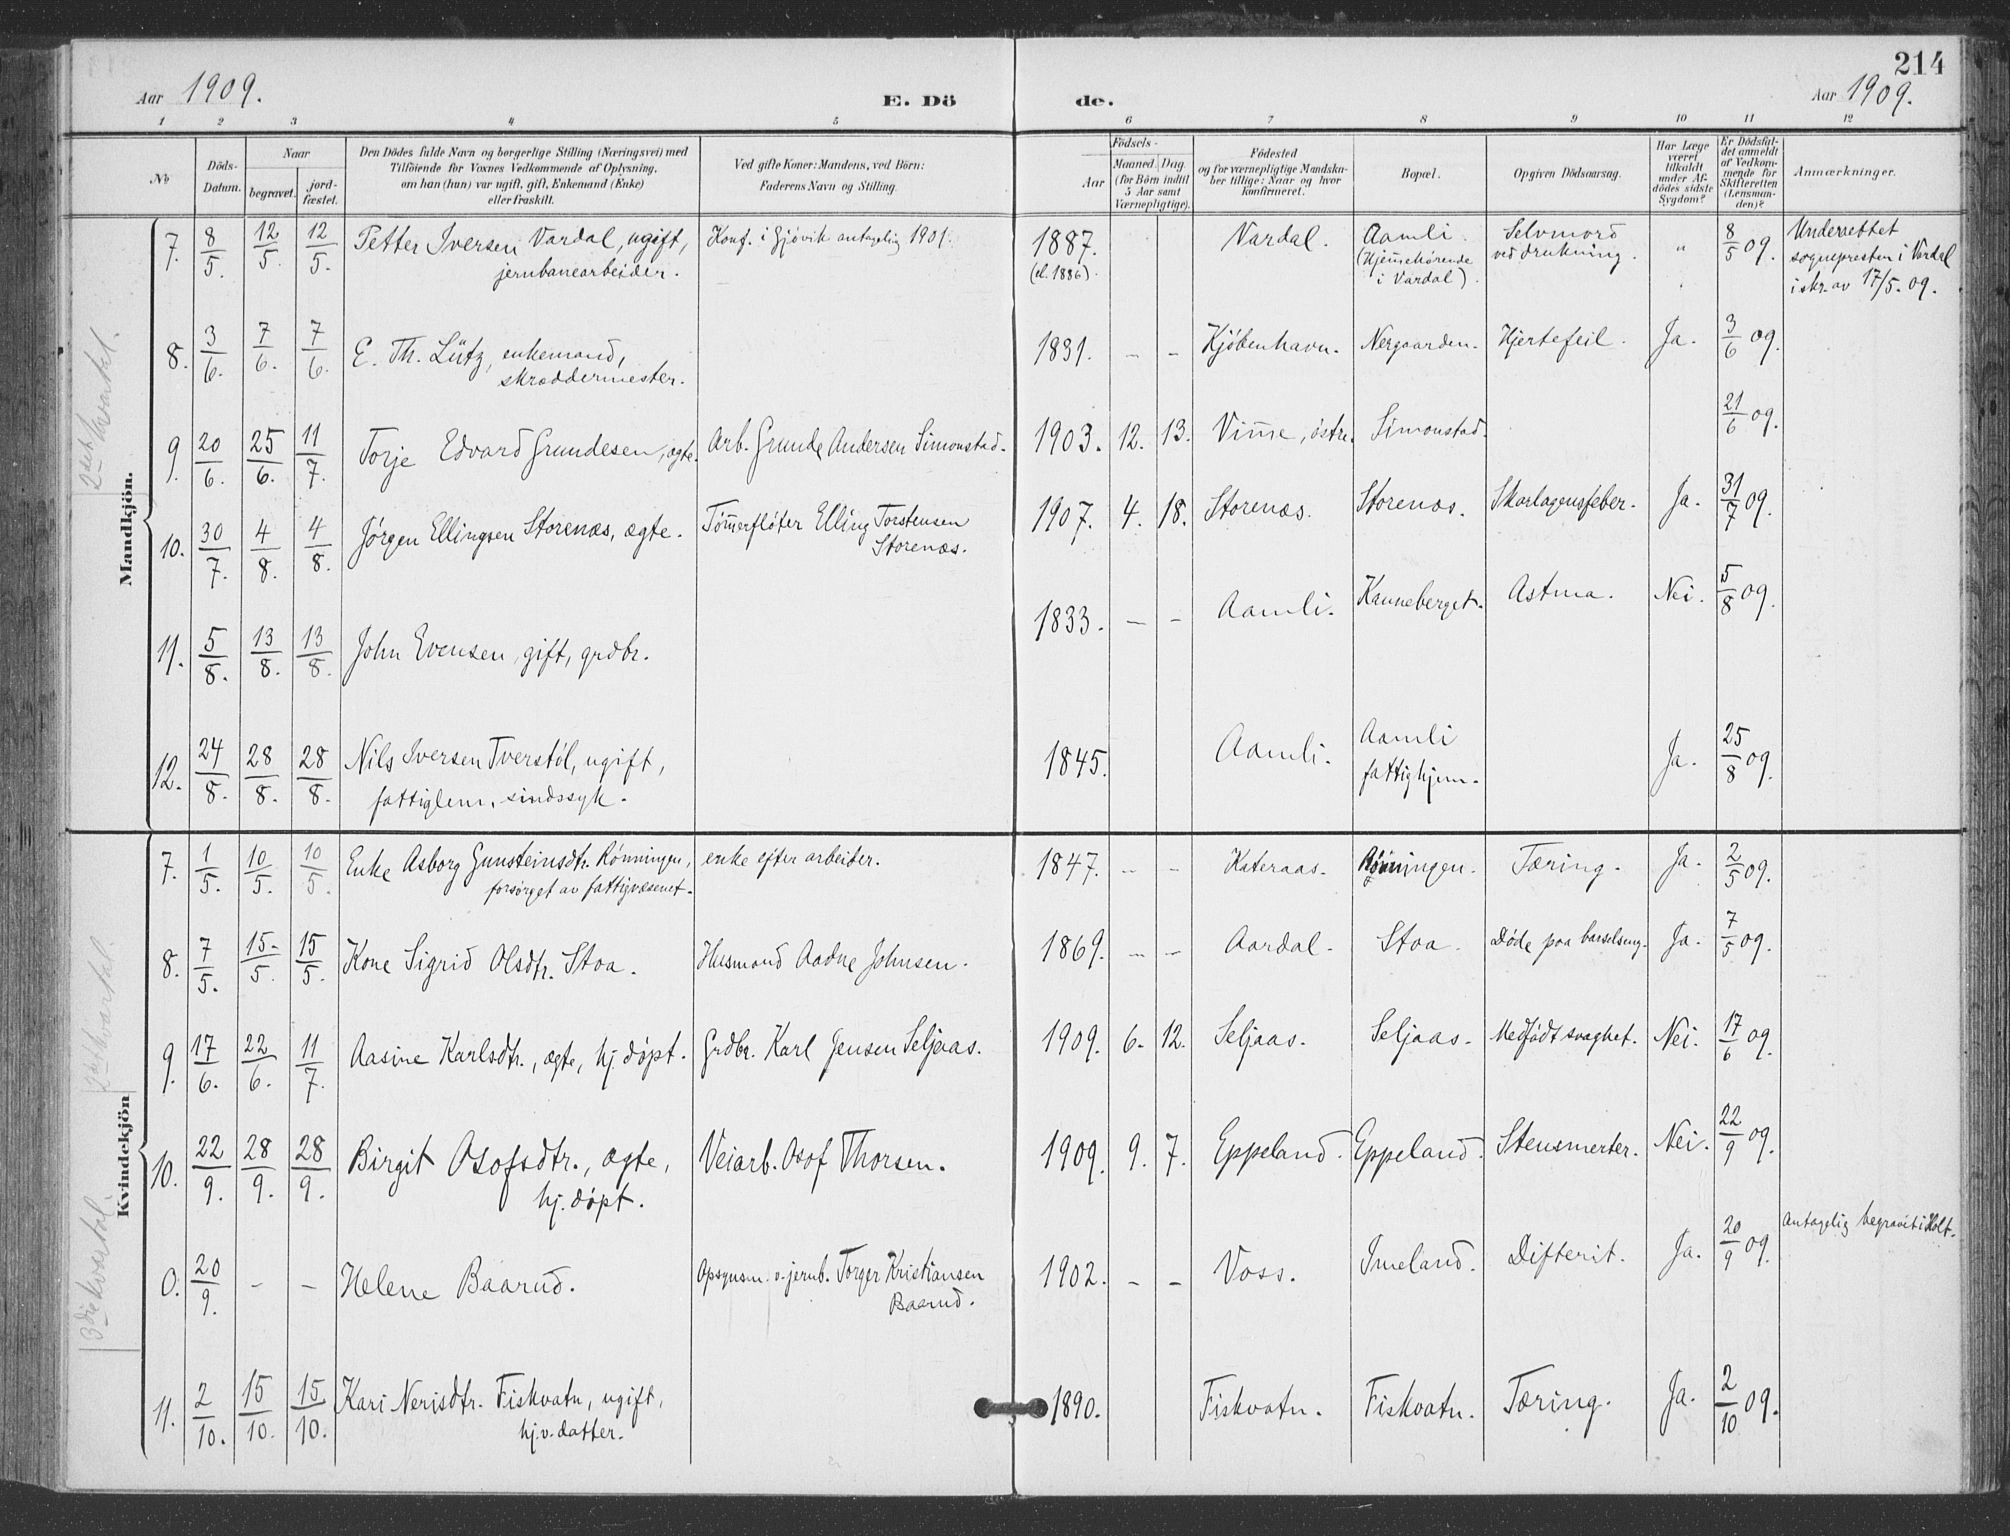 214
Aar 1909. E. Dö de. Aar 1909.
1 2 3 4 5 6 7 8 9 10 11 12
No
Döds-Datum.
Naar
begravet.
jord-fæstet.
Den Dödes fulde Navn og borgerlige Stilling (Næringsvei) med
Tilföiende for Voxnes Vedkommende af Oplysning,
om han (hun) var ugift, gift, Enkemand (Enke)
eller fraskilt.
Ved gifte Koner: Mandens, ved Börn:
Faderens Navn og Stilling.
Aar
Födsels-
Maaned. Dag.
(for Börn indtil
5 Aar samt
Værnepligtige).
Födested
og for værnepligtige Mandska-
ber tillige: Naar og hvor
konfirmeret.
Bopæl.
Opgiven Dödsaarsag.
Har Læge
været
tilkaldt
under Af-
dödes sidste
Sygdom?
Er Dödsfal-
det anmeldt
af Vedkom-
mende for
Skifteretten
(Lensman-
den)?
Anmærkninger.
Mandkjön.
2det kvartal.
7. 8/5. 12/5. 12/5. Petter Iversen Vardal, ugift, Konf. i Gjøvik antagelig 1901. 1887. Vardal. Aamli. Selvmord " 8/5 09. Underrettet
jernbanearbeider. (el. 1886). (Hjemmehørende ved drukning. sognepresten i Vardal
i Vardal). i skr. av 17/5. 09.
8. 3/6. 7/6. 7/6. E. Th. Lütz, enkemand, 1831. – – Kjøbenhavn. Nergaarden. Hjertefeil. Ja. 3/6 09.
skræddermester.
9. 20/6. 25/6. 11/7. Torje Edvard Grundesen, ægte. Arb. Grunde Andersen Simonstad. 1903. 12. 13. Vimme, østre. Simonstad. 21/6 09.
10. 30/7. 4/8. 4/8. Jørgen Ellingsen Storenæs, ægte. Tømmerfløter Elling Torstensen 1907. 4. 18. Storenæs. Storenæs. Skarlagensfeber. Ja. 31/7 09.
Storenæs.
11. 5/8. 13/8. 13/8. John Evensen, gift, grdbr. 1833. – – Aamli. Kanneberget. Astma. Nei. 5/8 09.
12. 24/8. 28/8. 28/8. Nils Iversen Tverstøl, ugift, 1845. Aamli. Aamli Ja. 25/8 09.
fattiglem, sindssyk. fattighjem.
Kvindekjön
2det kvartal.
7. 1/5. 10/5. 10/5. Enke Asborg Gunsteinsdtr. Rønningen, enke efter arbeider. 1847. – – Kateraas. Rønningen. Tæring. Ja. 2/5 09.
forsørget av fattigvæsenet.
8. 7/5. 15/5. 15/5. Kone Sigrid Olsdtr. Stoa. Husmand Aadne Johnsen. 1869. – – Aardal. Stoa. Døde paa barselseng. Ja. 7/5 09.
9. 17/6. 22/6. 11/7. Aasine Karlsdtr., ægte, hj. døpt. Grdbr. Karl Jensen Seljaas. 1909. 6. 12. Seljaas. Seljaas. Medfødt svaghet. Nei. 17/6 09.
3die kvartal.
10. 22/9. 28/9. 28/9. Birgit Osofsdtr., ægte, Veiarb. Osof Thorsen. 1909. 9. 7. Eppeland. Eppeland. Stensmerter. Nei. 22/9 09.
hj. døpt.
0. 20/9. – – Helene Baarud. Opsynsm. v. jernb. Torger Kristiansen 1902. – – Voss. Imeland. Difterit. Ja. 20/9 09. Antagelig begravet i Holt.
Baarud.
11. 2/10. 15/10. 15/10. Kari Nerisdtr. Fiskvatn, ugift, 1890. Fiskvatn. Fiskvatn. Tæring. Ja. 2/10 09.
hj. v. datter.